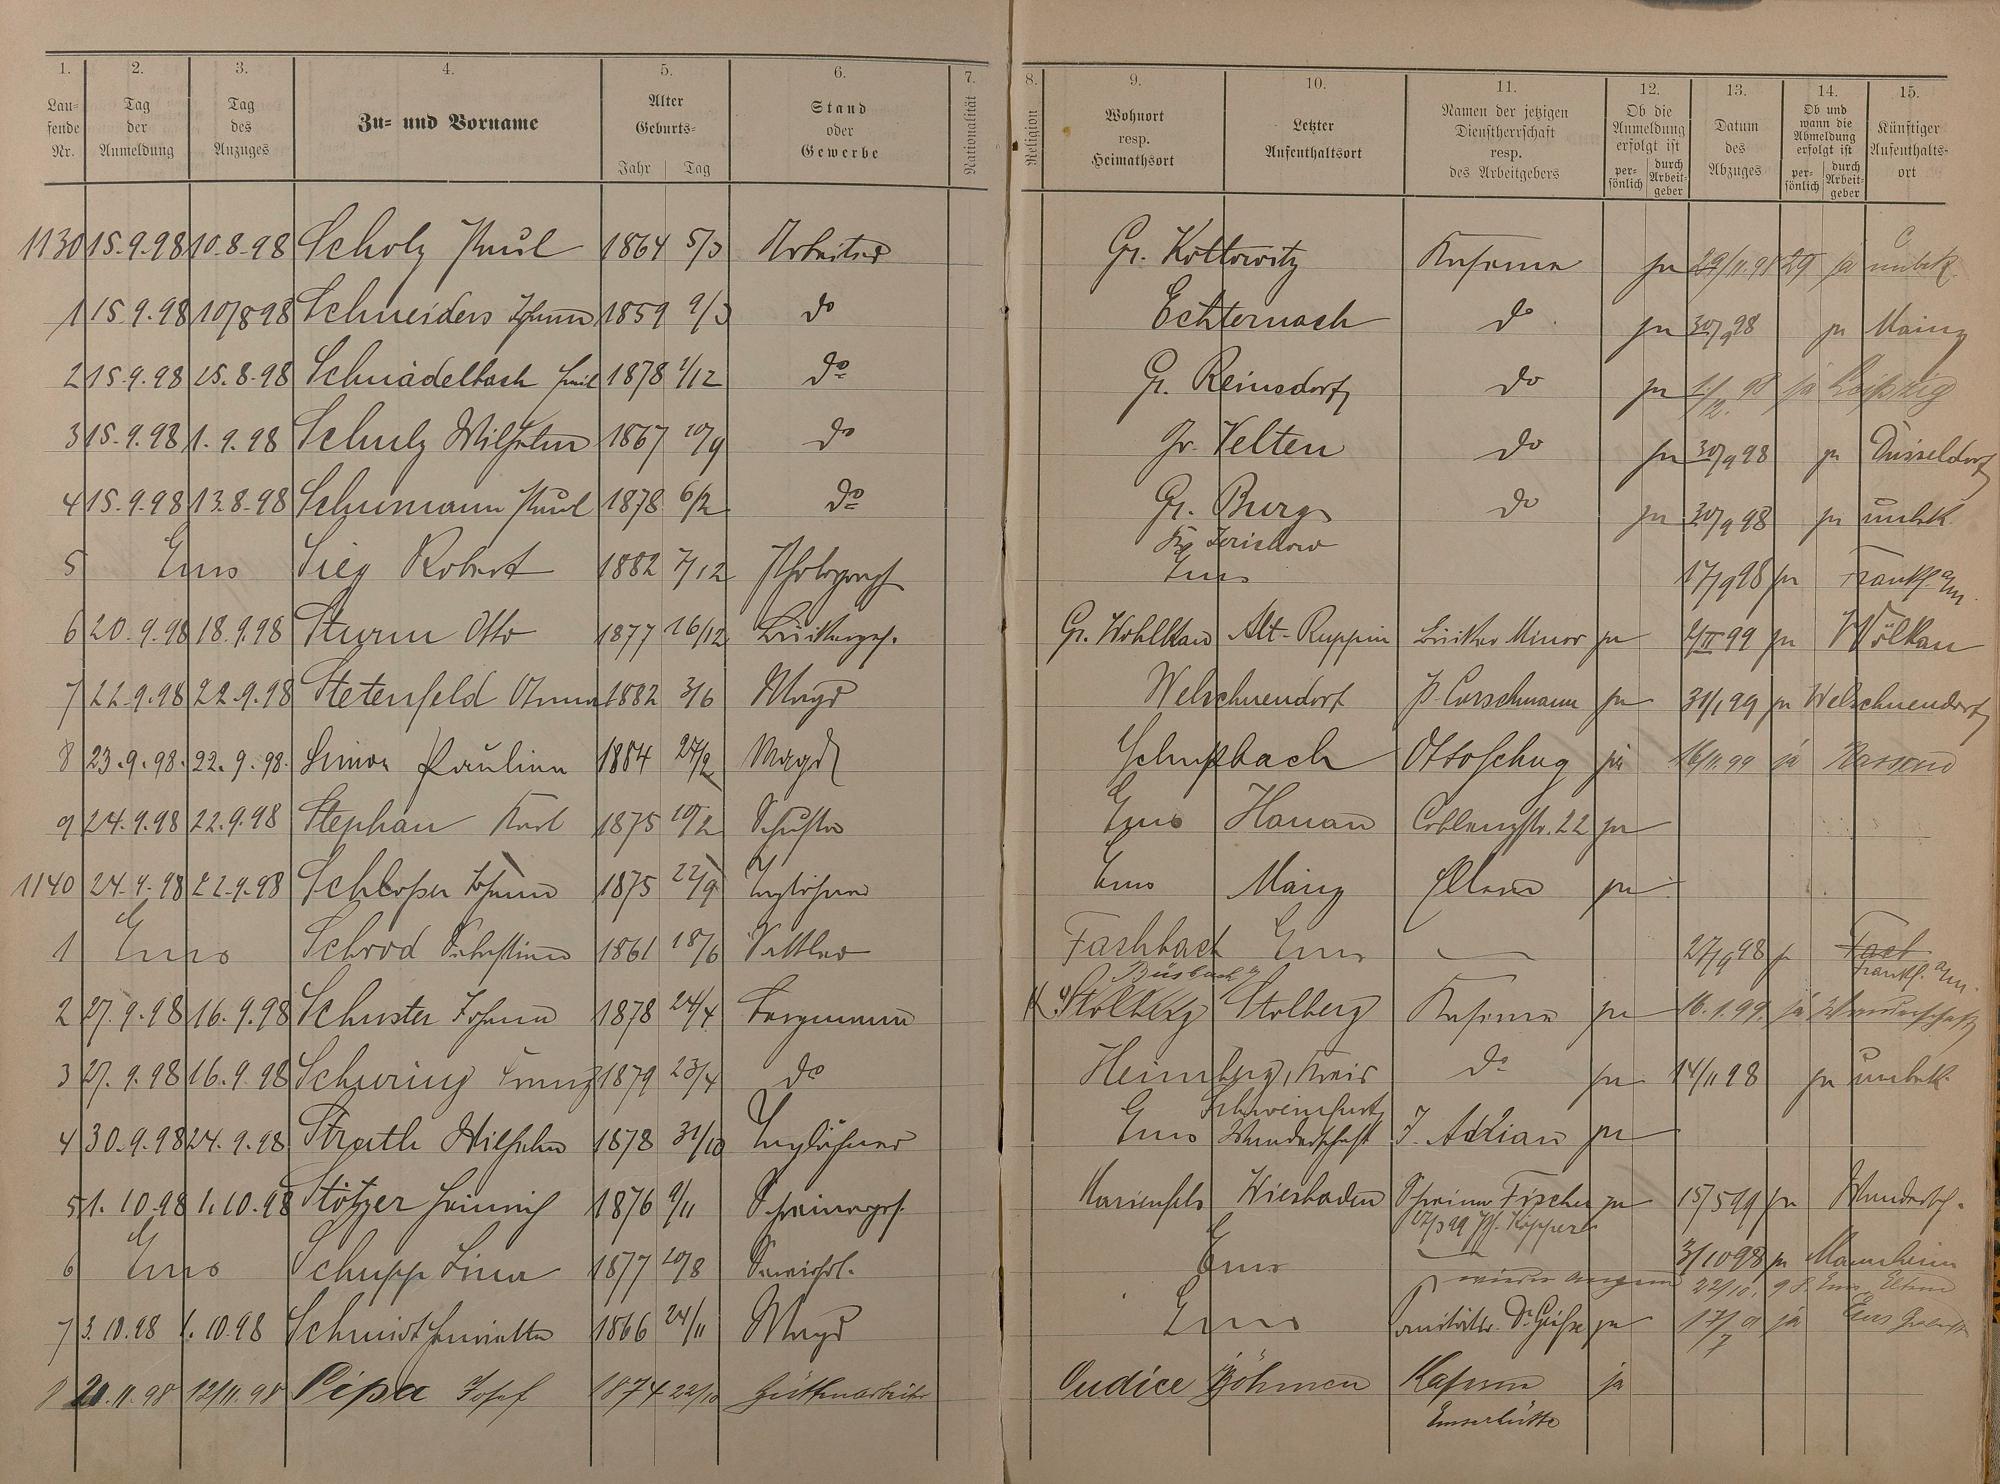 1. 2. 3. 4. 5. 6. 7. 8. 9. 10. 11. 12. 13. 14. 15.
Laufende Nr. Tag der Anmeldung Tag des Anzuges Zu- und Vorname Alter Geburts- Jahr Tag Stand oder Gewerbe Nationalität Religion Wohnort resp. Heimathsort Letzter Aufenthaltsort Namen der jetzigen Dienstherrschaft resp. des Arbeitgebers Ob die Anmeldung erfolgt ist persönlich durch Arbeitgeber Datum des Abzuges Ob und wann die Abmeldung erfolgt ist persönlich durch Arbeitgeber Künftiger Aufenthaltsort
1130 15.9.98 10.8.98 Scholz Paul 1864 5/3 Arbeiter Gr. Kottowitz Kaserne ja 29/11.98 29 ja unbek.
1 15.9.98 10/8 98 Schneiders Johann 1859 9/3 do Echternach do ja 30/9 98 ja Mainz
2 15.9.98 25.8.98 Schnädelbach Emil 1878 1/12 do Gr. Reinsdorf do ja 1/12.98 ja Leipzig
3 15.9.98 1.9.98 Schulz Wilhelm 1867 10/9 do Gr. Velten do ja 30/9 98 ja Düsseldorf
4 15.9.98 13.8.98 Schumann Paul 1878 6/2 do Gr. Burg do ja 30/9 98 ja unbek.
Jerichow
5 Ems Sieg Robert 1882 7/12 Photograph Ems 17/9 98 ja Frankf. a/m.
6 20.9.98 18.9.98 Sturm Otto 1877 16/12 Gr. Wohlkau Alt-Ruppin Minor ja 2/II 99 ja Wölkau
7 22.9.98 22.9.98 Stetenfeld Anna 1882 3/6 Magd Welschneudorf P. Curschmann ja 31/1 99 ja Welschneudorf
8 23.9.98. 22.9.98. Simon Paulina 1884 27/2 Magd Schupbach Otto Schug ja 16/11.99 ja Nassau
9 24.9.98 22.9.98 Stephan Karl 1875 10/2 Schuster Ems Hanau Coblenzstr. 22 ja
1140 24.9.98 22.9.98 Schloßer Johann 1875 22/9 Taglöhner Ems Mainz Eltern ja
1 Ems Schrod Sebastian 1861 18/6 Sattler Fachbach Ems 27/9 98 ja Fach
Frankf. a/m.
Büsbach
2 27.9.98 16.9.98 Schuster Johann 1878 24/4 Bergmann Stolberg Stolberg Kaserne ja 16.1.99. ja Wanderschaft
3 27.9.98 16.9.98 Schuring Franz 1879 23/4 do Heimberg, Kreis do ja 14/11 98 ja unbek.
Schweinfurt
4 30.9.98 24.9.98 Strath Wilhelm 1878 31/10 Taglöhner Ems Wanderschaft J. Adrian ja
5 1.10.98 1.10.98 Stötzer Heinrich 1876 9/11 Schreinerges. Marienfels Wiesbaden Schreiner Fischer ja 15/5 99 ja Wandersch.
17/3 99 Ph. Kappert
6 Ems Schupp Lina 1877 20/8 Ems 3/10 98 ja Mannheim
wieder angem 22/10. 98. Ems, Eltern
7 3.10.98 1.10.98 Schmidt Henriette 1866 24/11 Magd Ems Dr. Geiße ja 17/7 01 ja Ems
8 21.11.98 12/11.98 Pipa Josef 1874 22/10 Hüttenarbeiter Oudice Böhmen Kaserne ja
Emserhütte